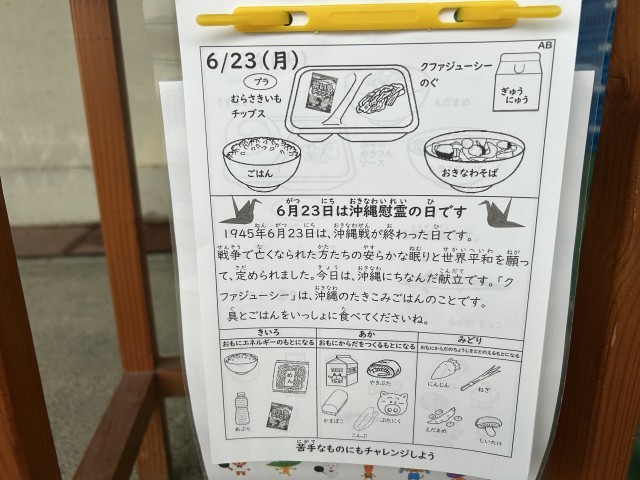 AB
6/23(月)
プラ
むらさきいも
チップス
クファジューシー
のぐ
ぎゅう
にゅう
ごはん
おきなわそば
6月23日は沖縄慰霊の日です
1945年6月23日は、沖縄戦が終わった日です。
戦争で亡くなられた方たちの安らかな眠りと世界平和を願っ
て、定められました。今日は、沖縄にちなんだ献立です。「ク
ファジューシー」は、沖縄のたきこみごはんのことです。
具とごはんをいっしょに食べてくださいね。
きいろ
おもにエネルギーのもとになる
めん
あぶら
あか
おもにからだをつくるもとになる
やきぶた
かまぼこ
こんぶ
ぶたにく
みどり
おもにからだのちょうしをととのえるもとになる
にんじん
ねぎ
えだまめ
しいたけ
苦手なものにもチャレンジしよう